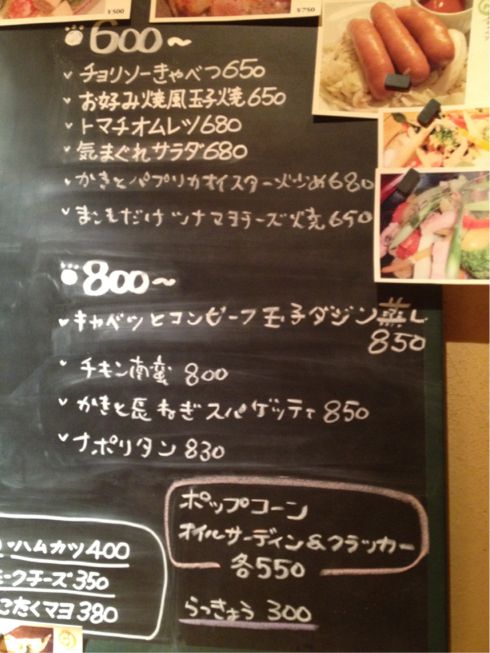 ¥500
¥750
600〜
チョリソーきゃべつ650
お好み焼風玉子焼650
トマチオムレツ680
気まぐれサラダ680
かきとパプリカオイスター炒め680
ツナマヨチーズ焼650
800〜
キャベツとコンビーフ玉子ダジン蒸し
850
チキン南蛮 800
かきと長ねぎスパゲッティ 850
ナポリタン 830
ポップコーン
オイルサーディン&クラッカー
各550
らっきょう 300
ハムカツ400
ークチーズ350
こたくマヨ380